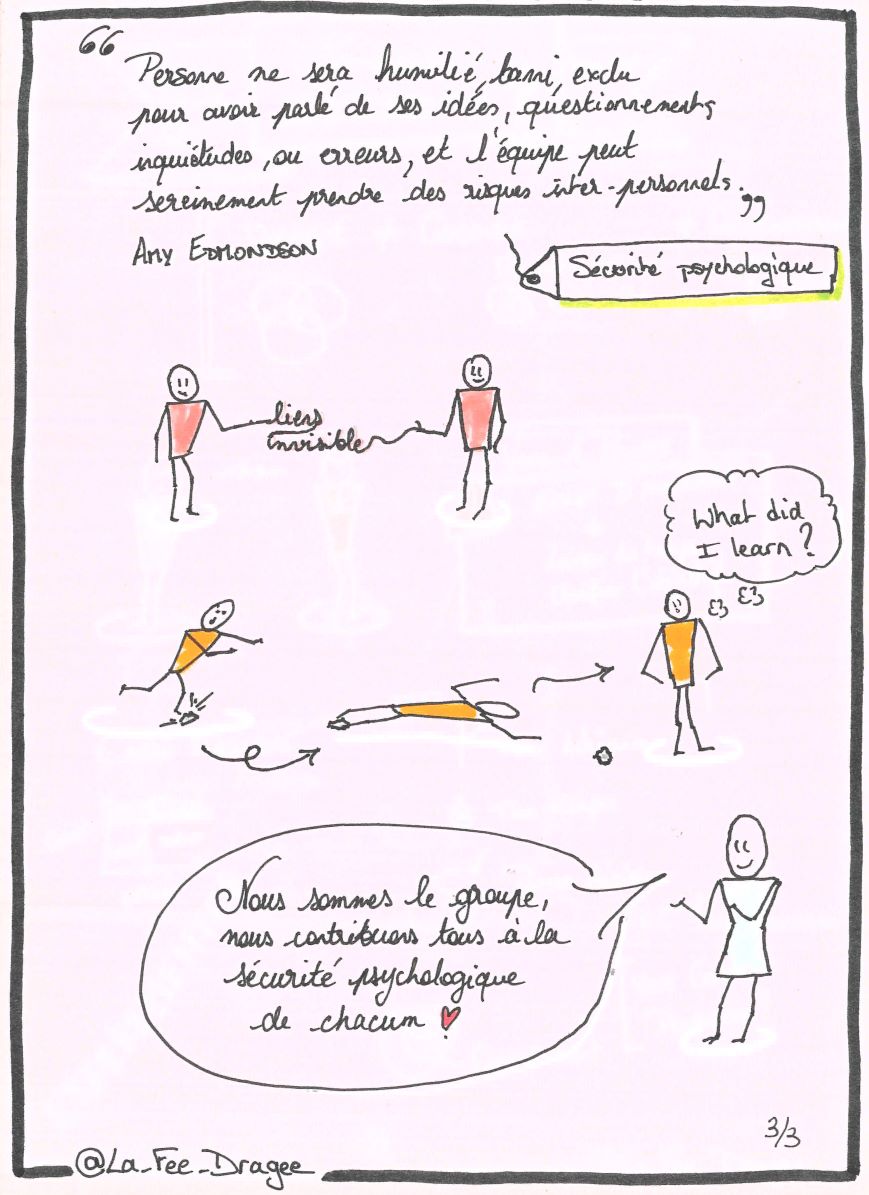 “ Personne ne sera humilié, banni, exclu
pour avoir parlé de ses idées, questionnements,
inquiétudes, ou erreurs, et l'équipe peut
sereinement prendre des risques inter-personnels. ”
Amy EDMONDSON
Sécurité psychologique
liens
invisible
What did
I learn ?
Nous sommes le groupe,
nous contribuons tous à la
sécurité psychologique
de chacun ♥
3/3
@La_Fee_Dragee